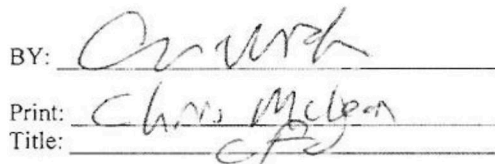 BY:
Print: Chris McLean
Title: CFO